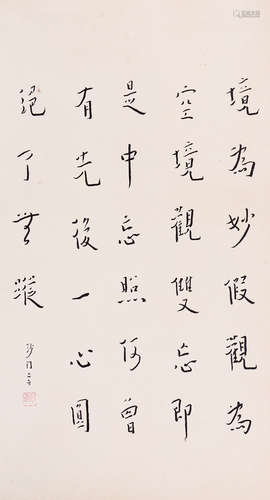 境為妙假觀為
空境觀雙忘即
是中忘照何曾
有先後一心圓
絕了無蹤
沙門